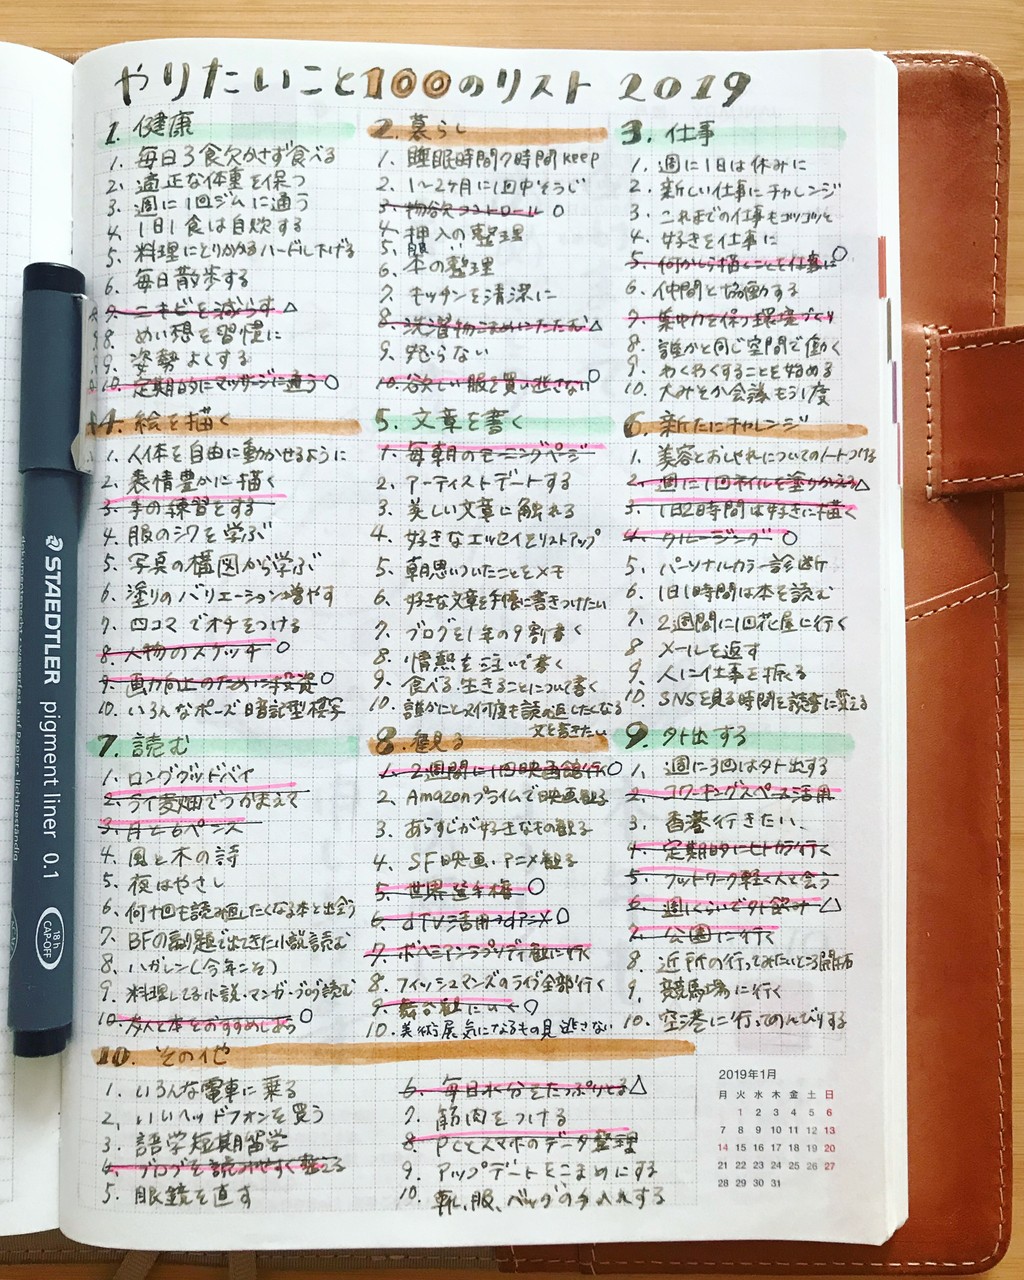 やりたいこと100のリスト 2019
1. 健康
1. 毎日3食欠かさず食べる
2. 適正な体重を保つ
3. 週に1回ジムに通う
4. 1日1食は自炊する
5. 料理にとりかかるハードル下げる
6. 毎日散歩する
7. ニキビを減らす △
8. めい想を習慣に
9. 姿勢よくする
10. 定期的にマッサージに通う ○
2. 暮らし
1. 睡眠時間7時間keep
2. 1〜2ヶ月に1回中そうじ
3. 物欲コントロール ○
4. 押入の整理
5. 服 〃
6. 本の整理
7. キッチンを清潔に
8. 洗濯物こまめにたたむ △
9. 怒らない
10. 欲しい服を買い逃さない ○
3. 仕事
1. 週に1日は休みに
2. 新しい仕事にチャレンジ
3. これまでの仕事もコツコツと
4. 好きを仕事に
5. 何かしら描くことを仕事に ○
6. 仲間と協働する
7. 集中力を保つ環境づくり
8. 誰かと同じ空間で働く
9. わくわくすることを始める
10. 大みそか会議もう1度
4. 絵を描く
1. 人体を自由に動かせるように
2. 表情豊かに描く
3. 手の練習をする
4. 服のシワを学ぶ
5. 写真の構図から学ぶ
6. 塗りのバリエーション増やす
7. 四コマでオチをつける
8. 人物のスケッチ ○
9. 画力向上のために投資 ○
10. いろんなポーズ暗記型模写
5. 文章を書く
1. 毎朝のモーニングページ
2. アーティストデートする
3. 美しい文章に触れる
4. 好きなエッセイをリストアップ
5. 朝思いついたことをメモ
6. 好きな文章を手帳に書きつけたい
7. ブログを1年の9割書く
8. 情熱を注いで書く
9. 食べる・生きることについて書く
10. 誰かにとって何度も読み返したくなる
文を書きたい
6. 新たにチャレンジ
1. 美容とおしゃれについてのノートつける
2. 週に1回ネイルを塗りかえる △
3. 1日2時間は好きに描く
4. クルージング ○
5. パーソナルカラー診断
6. 1日1時間は本を読む
7. 2週間に1回花屋に行く
8. メールを返す
9. 人に仕事を振る
10. SNSを見る時間を読書に変える
7. 読む
1. ロンググッドバイ
2. ライ麦畑でつかまえて
3. 月と6ペンス
4. 風と木の詩
5. 夜はやさし
6. 何十回も読み返したくなる本と出会う
7. BFの副題で出てきた小説読む
8. ハガレン(今年こそ)
9. 料理してる小説・マンガ・ブログ読む
10. 友人と本をおすすめしあう ○
8. 観る
1. 2週間に1回映画館行く ○
2. Amazonプライムで映画観る
3. あらすじが好きなもの観る
4. SF映画・アニメ観る
5. 世界選手権 ○
6. dTV活用→dアニメ ○
7. ボヘミアンラプソディ観に行く
8. フィッシュマンズのライブ全部行く
9. 舞台観にいく ○
10. 美術展気になるもの見逃さない
9. 外出する
1. 週に3回は外出する
2. コワーキングスペース活用
3. 香港行きたい、
4. 定期的にヒトカラ行く
5. フットワーク軽く人と会う
6. 週1くらいで外飲み △
7. 公園に行く
8. 近所の行ってみたいところ開拓
9. 競馬場に行く
10. 空港に行ってのんびりする
10. その他
1. いろんな電車に乗る
2. いいヘッドフォンを買う
3. 語学短期留学
4. ブログを読みやすく整える
5. 眼鏡を直す
6. 毎日水分をたっぷりとる △
7. 筋肉をつける
8. PCとスマホのデータ整理
9. アップデートをこまめにする
10. 靴、服、バッグの手入れする
2019年1月
月 火 水 木 金 土 日
1 2 3 4 5 6
7 8 9 10 11 12 13
14 15 16 17 18 19 20
21 22 23 24 25 26 27
28 29 30 31
STAEDTLER pigment liner 0.1
18h
CAP-OFF